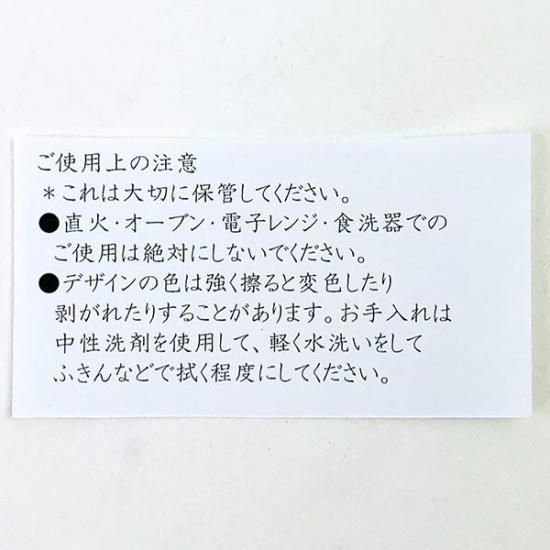 ご使用上の注意
＊これは大切に保管してください。
●直火・オーブン・電子レンジ・食洗器での
ご使用は絶対にしないでください。
●デザインの色は強く擦ると変色したり
剥がれたりすることがあります。お手入れは
中性洗剤を使用して、軽く水洗いをして
ふきんなどで拭く程度にしてください。